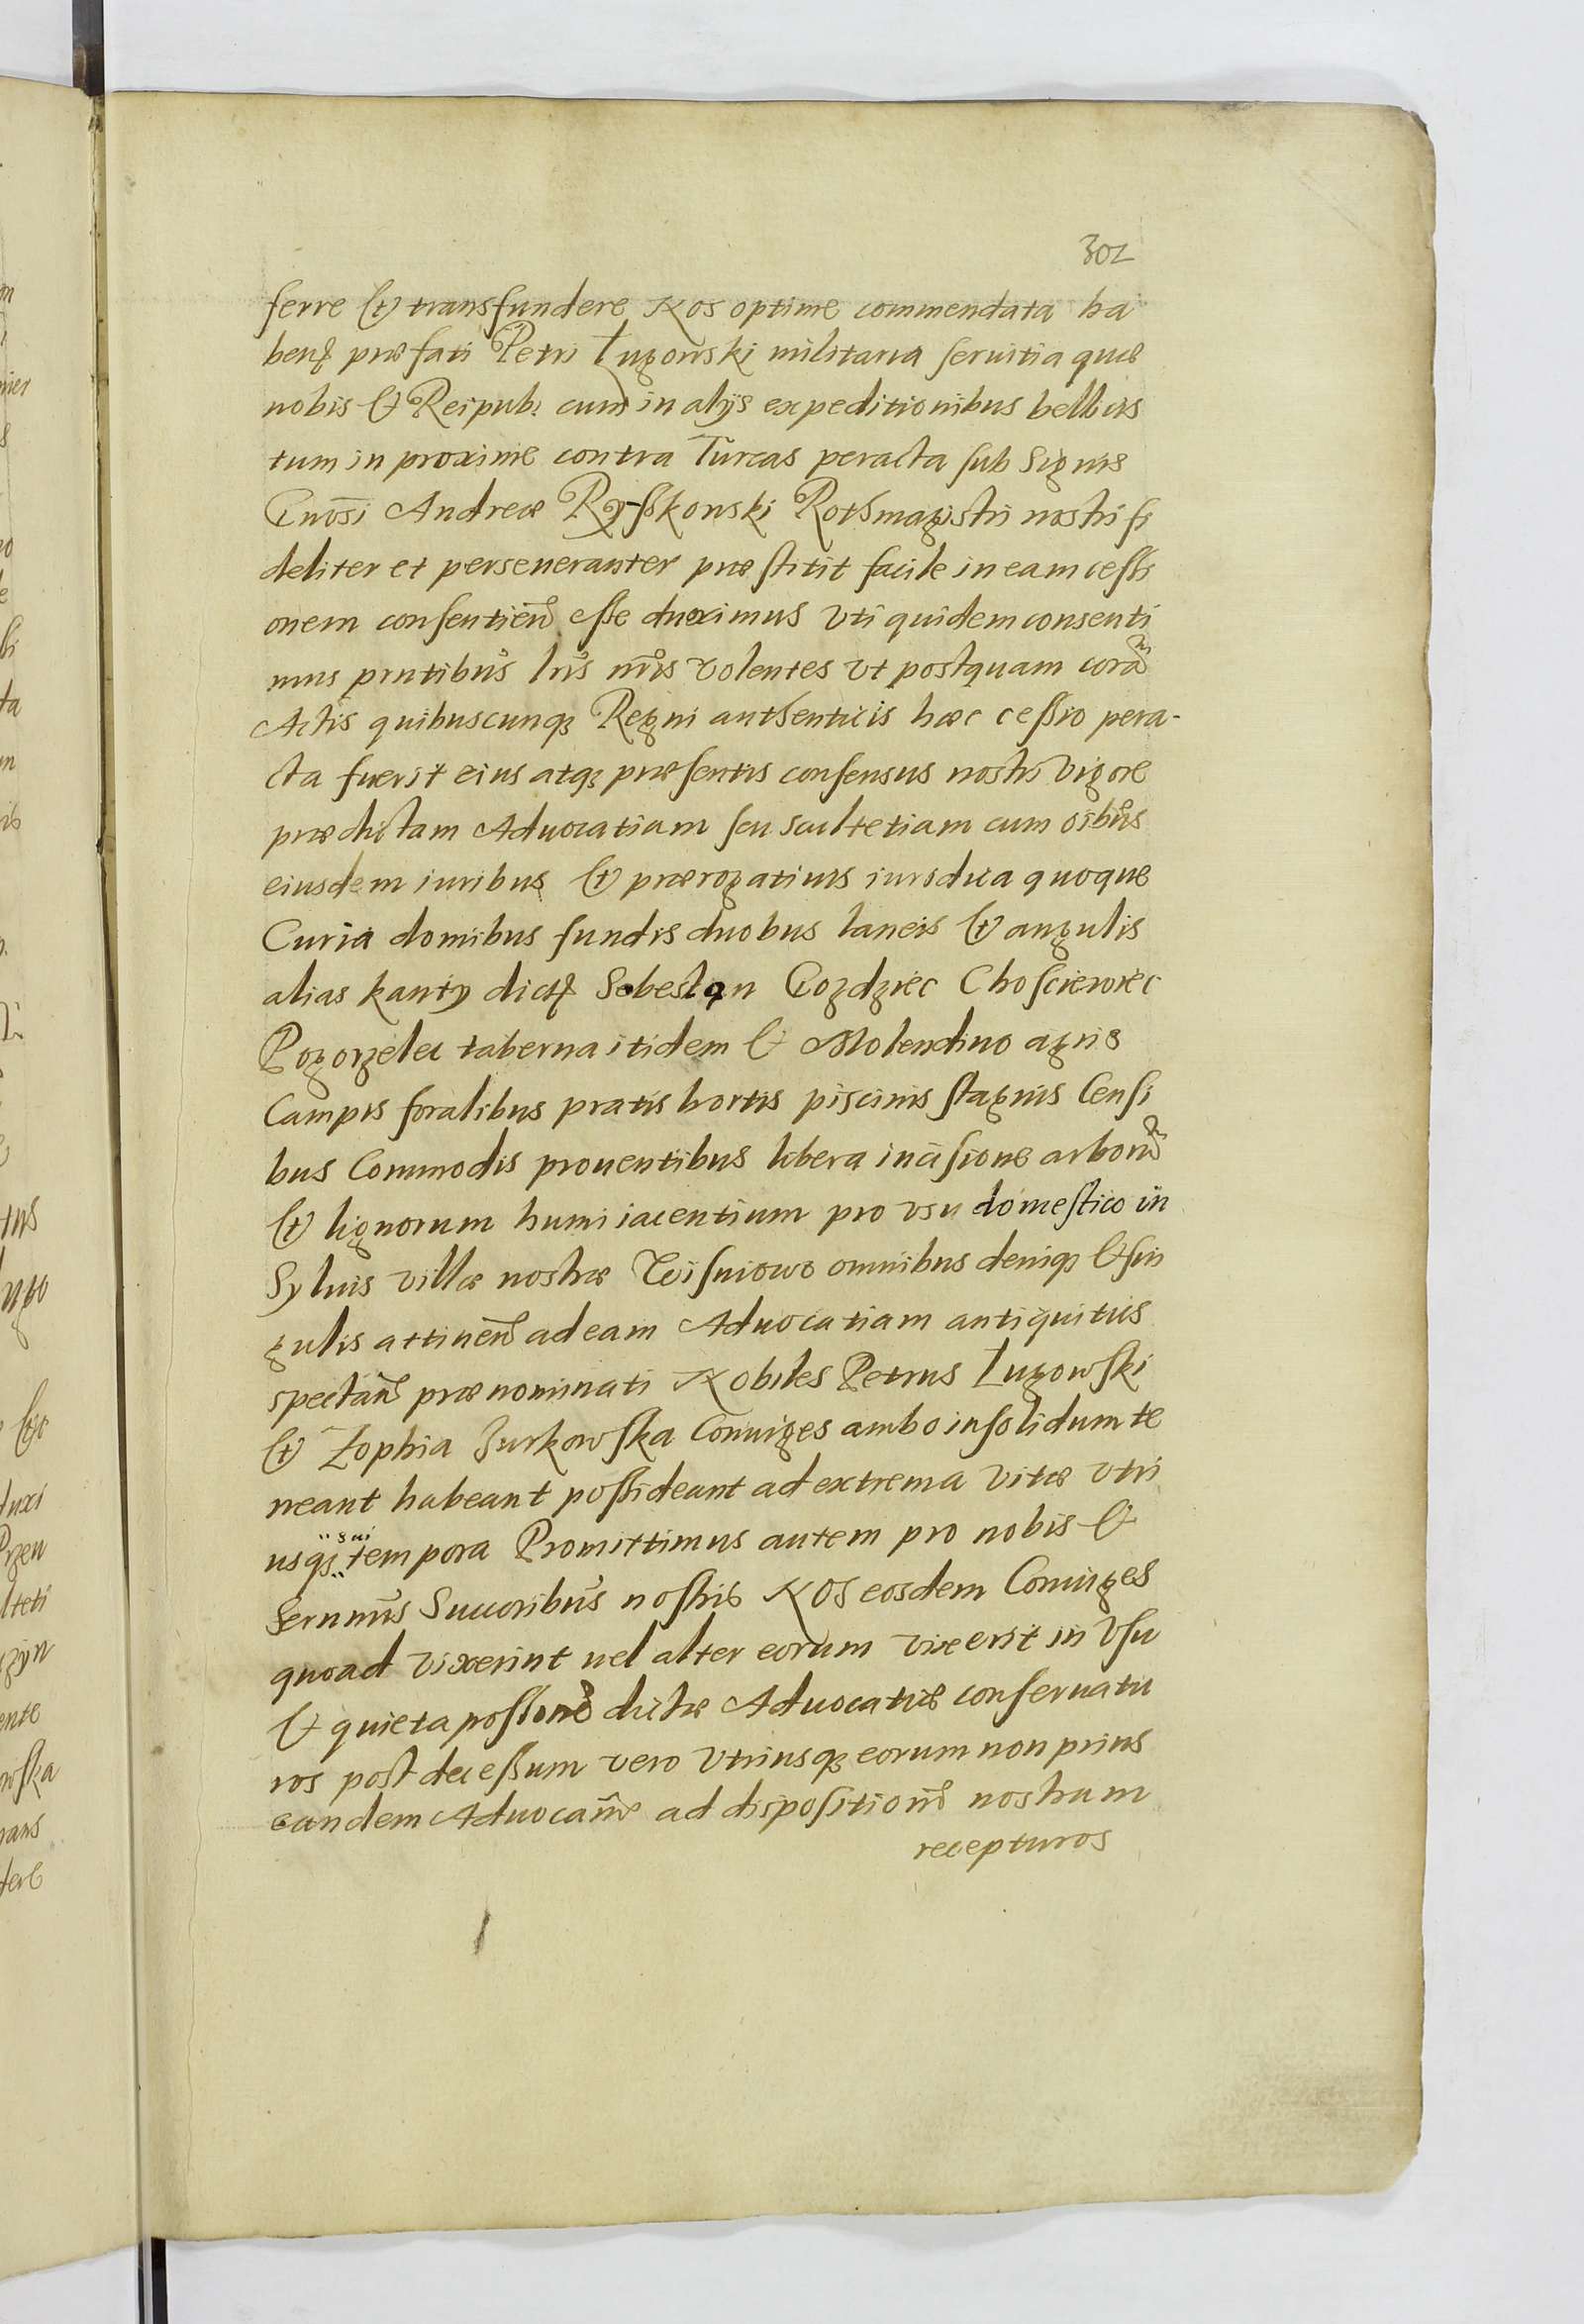 302
ferre et transfundere Nos optime commendata ha
benẽ præfati Petri Lugowski militaria seruitia quæ
nobis et Reipub: cum in alijs expeditionibus bellicis
tum in proxime contra Turcas peracta sub signis
Gnōsi Andreæ Ryszkowski Rothmagistri nostri fi
deliter et perseueranter præstitit facile in eam cessi
onem consentienẽ esse duximus vti quidem consenti
mus pñtibus lr̃is nr̃is volentes vt postquam corã
Actis quibuscunqȝ Regni authenticis hæc cessio pera-
cta fuerit eius atqȝ præsentis consensus nostri vigore
prædictam Aduocatiam seu scultetiam cum oĩbus
eiusdem iuribus et prærogatiuis iurisdica quoque
Curia domibus fundis duobus laneis et angulis
alias kanty dict Gozdziec Choscierowiec
Pogorzelec taberna itidem et Molendino agris
Campis foralibus pratis hortis piscinis stagnis Censi
bus Commodis prouentibus libera incisione arborũ
et lignorum humi iacentium pro vsu domestico in
Syluis villæ nostræ Wisniowo omnibus deniqȝ et sin
gulis attinenẽ ad eam Aduocatiam antiquitus
spectanẽ prænominati Nobiles Petrus Lugowski
et Zophia Zurkowska Coniuges ambo insolidum te
neant habeant possideant ad extrema vitæ vtri
usqȝ sui tempora Promittimus autem pro nobis et
Sernmis Succoribus nostris Nos eosdem Coniuges
quoad vixerint uel alter eorum vixerit in vsu
et quieta possione dictæ Aduocatiæ conseruatu
ros post decessum vero vtriusqȝ eorum non prius
eandem Aduocanẽ ad dispositionẽ nostram
recepturos